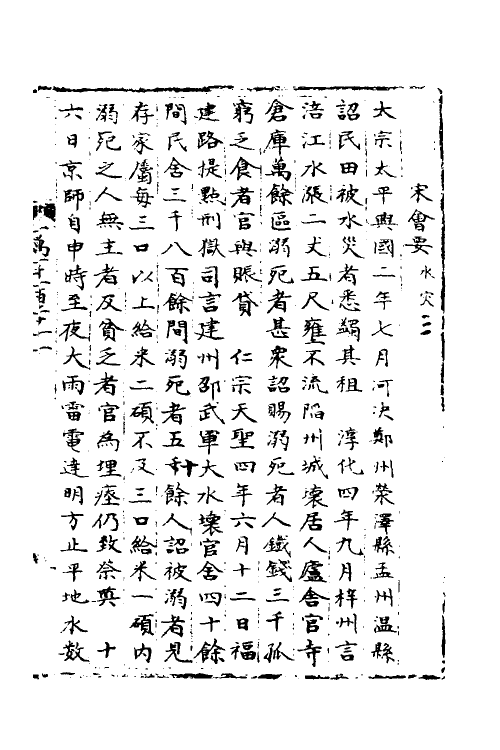 宋會要 水災二
太宗太平興國二年七月河决鄭州滎澤縣孟州温縣
詔民田被水災者悉蠲其租 淳化四年九月梓州言
涪江水漲二丈五尺壅不流陷州城壞居人廬舍官寺
倉庫萬餘區溺死者甚衆詔賜溺死者人鐵錢三千孤
窮乏食者官與賑貸 仁宗天聖四年六月十二日福
建路提點刑獄司言建州邵武軍大水壞官舍四十餘
間民舍三千八百餘間溺死者五十餘人詔被溺者見
存家屬每三口以上給米二碩不及三口給米一碩内
溺死之人無主者及貧乏者官為埋瘞仍致祭奠 十
六日京師自申時至夜大雨雷電達明方止平地水数